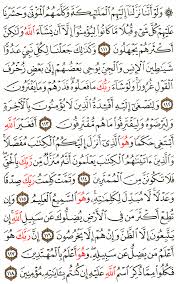 وَلَوْ أَنَّنَا نَزَّلْنَا إِلَيْهِمُ الْمَلَائِكَةَ وَكَلَّمَهُمُ الْمَوْتَىٰ وَحَشَرْنَا
عَلَيْهِمْ كُلَّ شَيْءٍ قُبُلًا مَّا كَانُوا لِيُؤْمِنُوا إِلَّا أَن يَشَاءَ اللَّهُ وَلَٰكِنَّ
أَكْثَرَهُمْ يَجْهَلُونَ ١١١ وَكَذَٰلِكَ جَعَلْنَا لِكُلِّ نَبِيٍّ عَدُوًّا
شَيَاطِينَ الْإِنسِ وَالْجِنِّ يُوحِي بَعْضُهُمْ إِلَىٰ بَعْضٍ زُخْرُفَ
الْقَوْلِ غُرُورًا وَلَوْ شَاءَ رَبُّكَ مَا فَعَلُوهُ فَذَرْهُمْ وَمَا يَفْتَرُونَ
١١٢ وَلِتَصْغَىٰ إِلَيْهِ أَفْئِدَةُ الَّذِينَ لَا يُؤْمِنُونَ بِالْآخِرَةِ
وَلِيَرْضَوْهُ وَلِيَقْتَرِفُوا مَا هُم مُّقْتَرِفُونَ ١١٣ أَفَغَيْرَ اللَّهِ
أَبْتَغِي حَكَمًا وَهُوَ الَّذِي أَنزَلَ إِلَيْكُمُ الْكِتَابَ مُفَصَّلًا
وَالَّذِينَ آتَيْنَاهُمُ الْكِتَابَ يَعْلَمُونَ أَنَّهُ مُنَزَّلٌ مِّن رَّبِّكَ بِالْحَقِّ
فَلَا تَكُونَنَّ مِنَ الْمُمْتَرِينَ ١١٤ وَتَمَّتْ كَلِمَتُ رَبِّكَ صِدْقًا
وَعَدْلًا لَّا مُبَدِّلَ لِكَلِمَاتِهِ وَهُوَ السَّمِيعُ الْعَلِيمُ ١١٥ وَإِن
تُطِعْ أَكْثَرَ مَن فِي الْأَرْضِ يُضِلُّوكَ عَن سَبِيلِ اللَّهِ إِن
يَتَّبِعُونَ إِلَّا الظَّنَّ وَإِنْ هُمْ إِلَّا يَخْرُصُونَ ١١٦ إِنَّ رَبَّكَ هُوَ
أَعْلَمُ مَن يَضِلُّ عَن سَبِيلِهِ وَهُوَ أَعْلَمُ بِالْمُهْتَدِينَ ١١٧
فَكُلُوا مِمَّا ذُكِرَ اسْمُ اللَّهِ عَلَيْهِ إِن كُنتُم بِآيَاتِهِ مُؤْمِنِينَ ١١٨